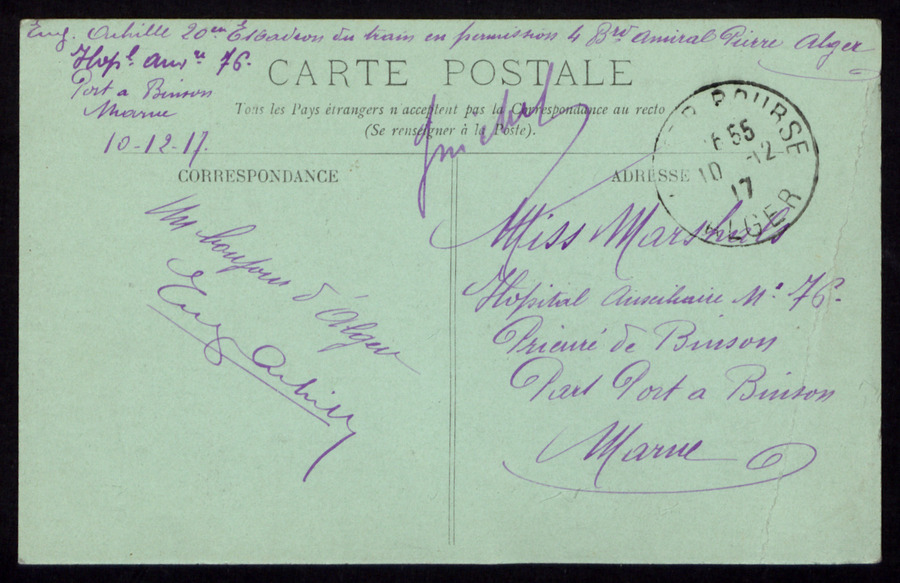 Eug. Achille 20em Escadron du train en permission 4 Brd Amiral Pierre Alger
Hopl. Auxre 76.
Port a Binson
Marne
10-12-17.
CARTE POSTALE
Tous les Pays étrangers n'acceptent pas la Correspondance au recto
(Se renseigner à la Poste).
CORRESPONDANCE
ADRESSE
BOURSE
55
10 -12
17
ALGER
Un bonjour d'Alger
Eug Achille
Miss Marshall
Hopital Auxiliaire No 76.
Prieuré de Binson
Part Port a Binson
Marne